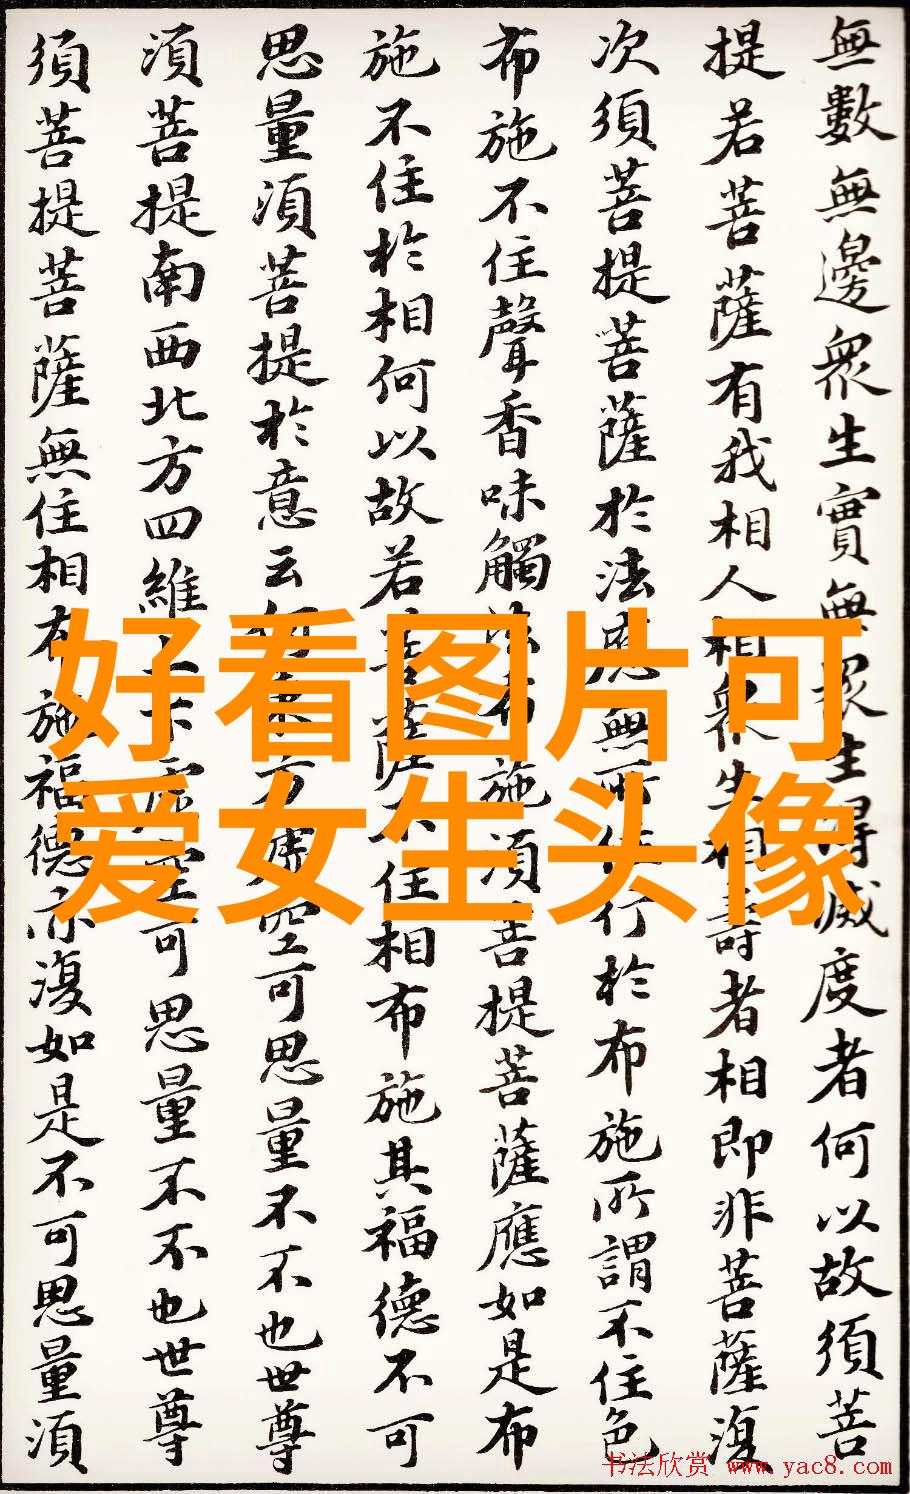 無數無邊衆生實無衆生得滅度者何以故須菩
提若菩薩有我相人相衆生相壽者相即非菩薩復
次須菩提菩薩於法應無所住行於布施所謂不住色
布施不住聲香味觸法布施須菩提菩薩應如是布
施不住於相何以故若菩薩不住相布施其福德不可
思量須菩提於意云何東方虛空可思量不不也世尊
須菩提南西北方四維上下虛空可思量不不也世尊
須菩提菩薩無住相布施福德亦復如是不可思量須
好看图片可
爱女生头像
书法欣赏 www.yac8.com